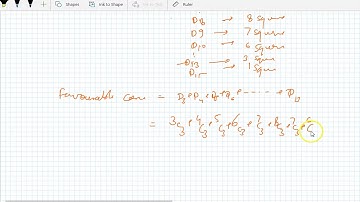 Ink to Shape
Ink to Shapes
Ruler
D8 → 8 square
D9 → 7 square
D10 → 6 square
D13 → 3 square
D15 → 1 square
Favourable case = D3 + D4 + D5 + D6 + ----- + D
= 3C3 + 4C3 + 5C3 + 6C3 + 7C3 + 8C3 + 7C3 + 6C3